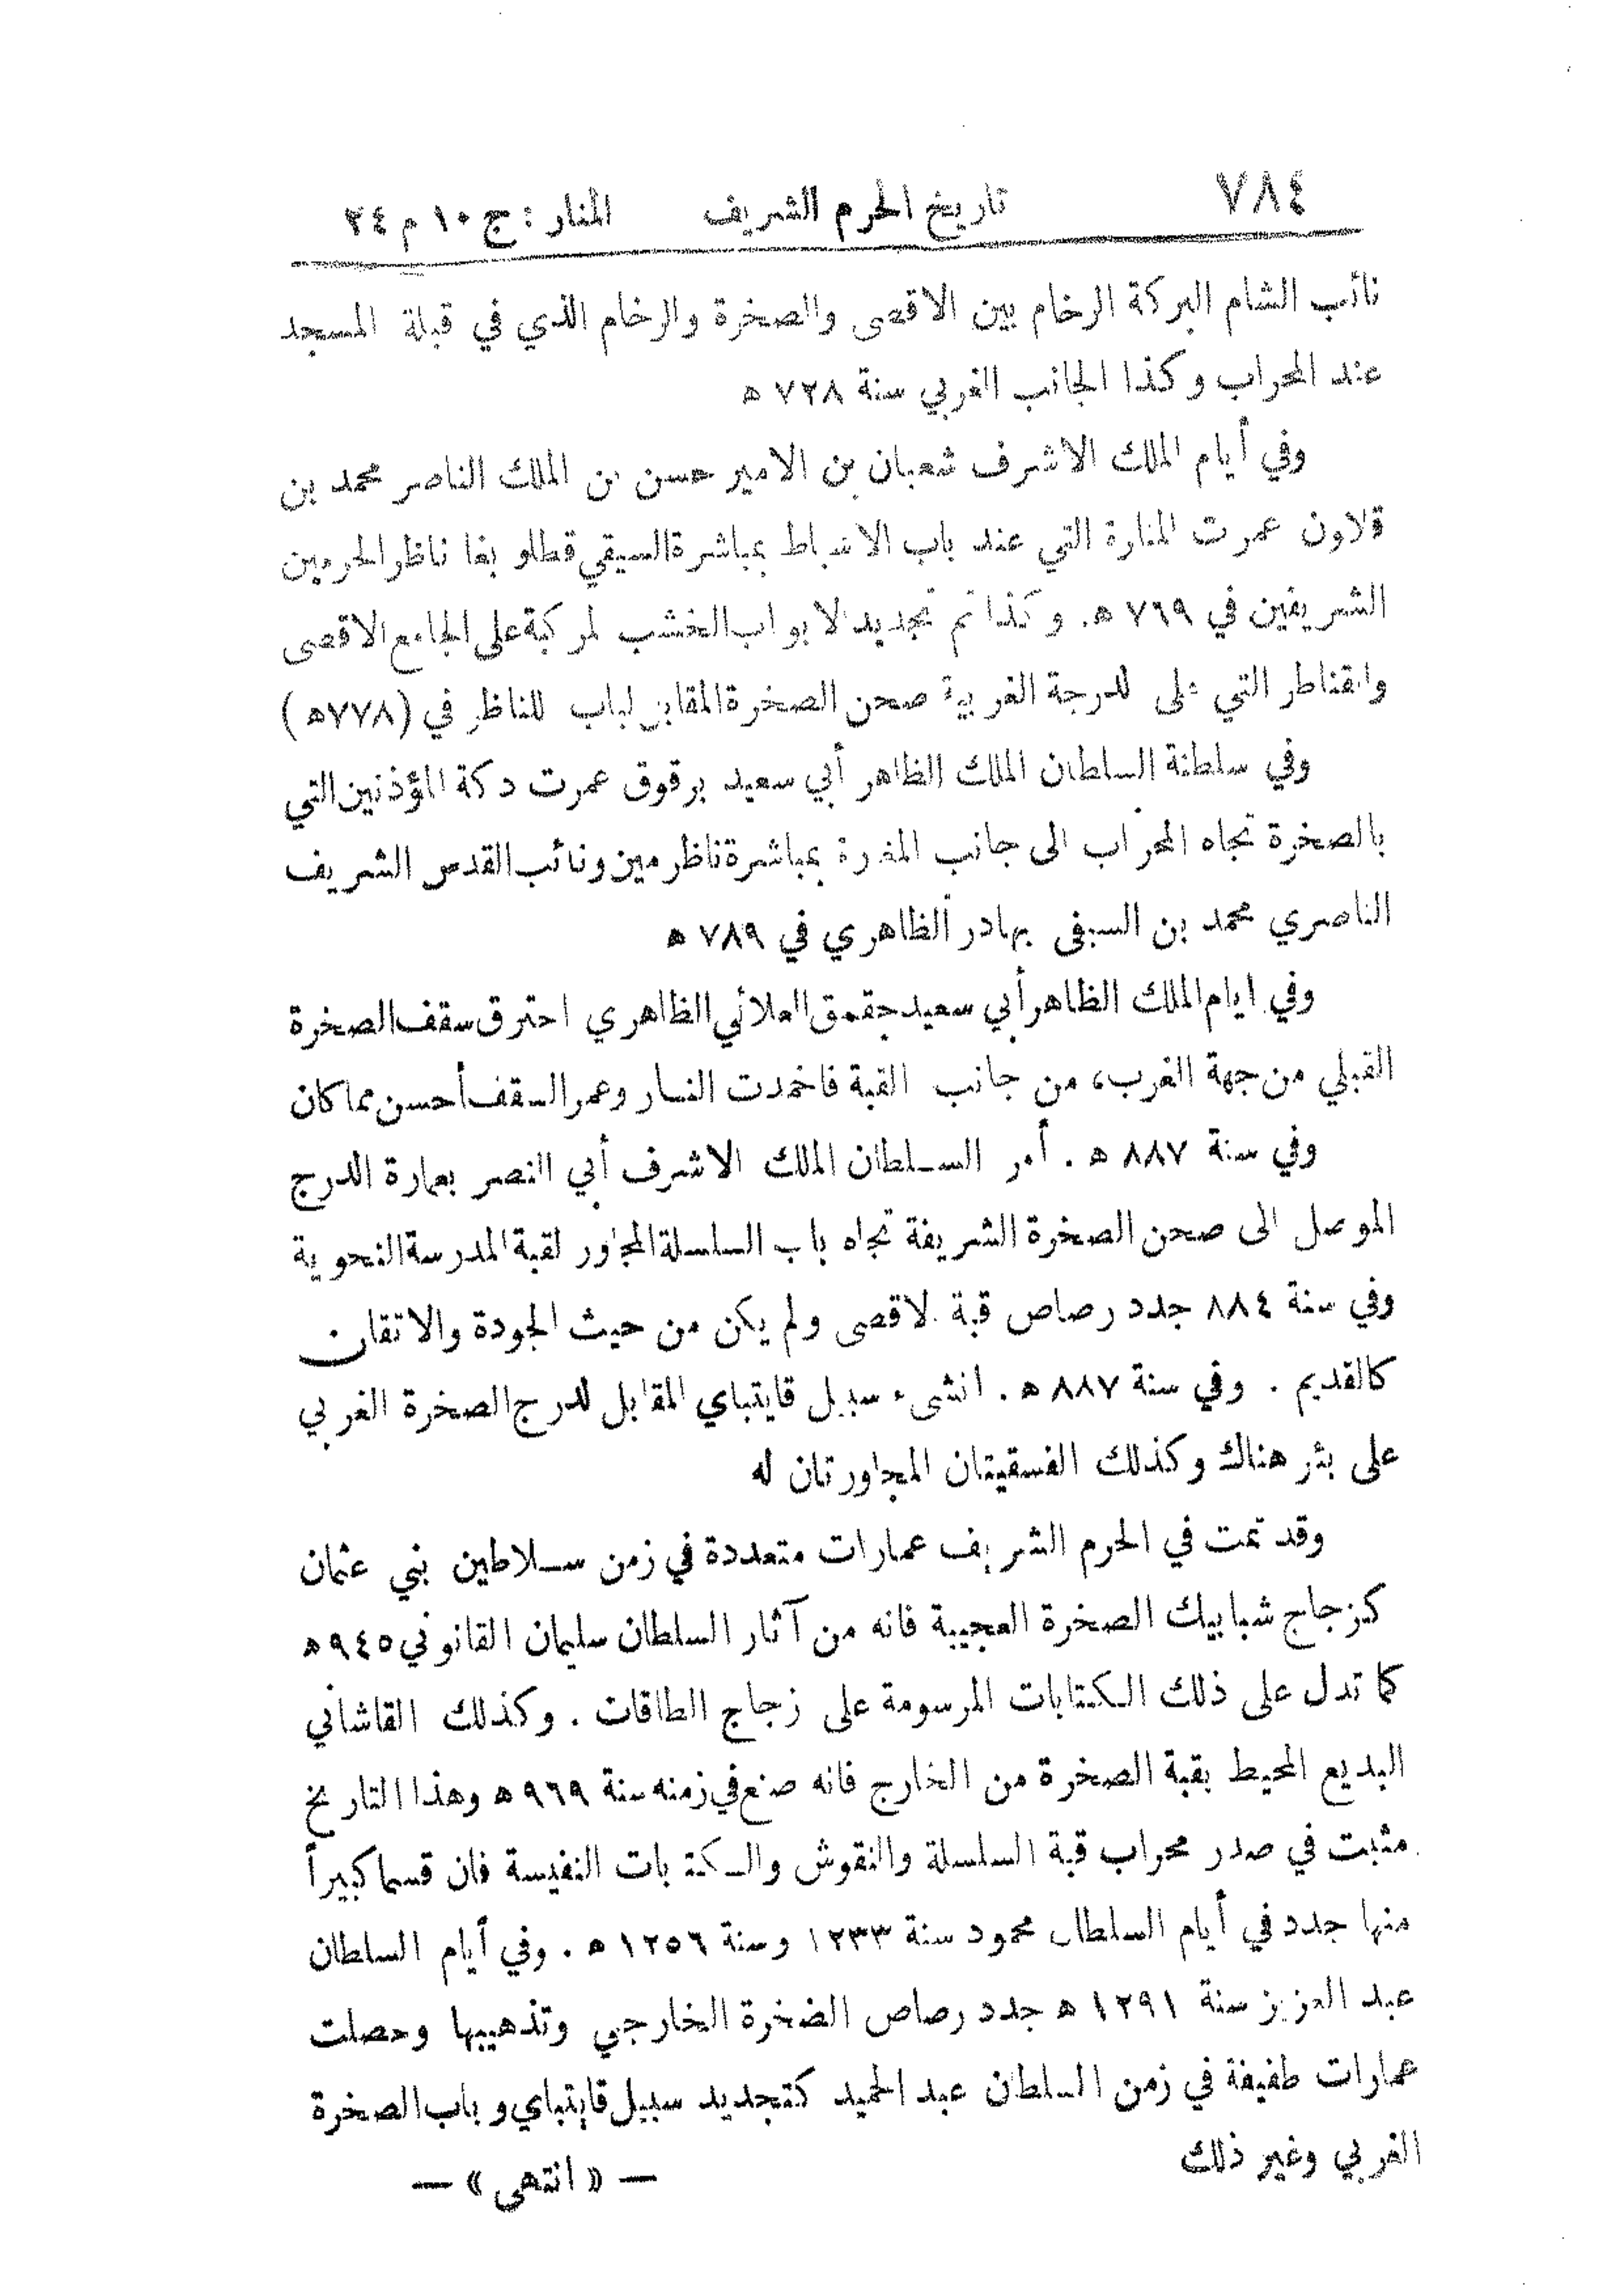 ٧٨٤ تاريخ الحرم الشريف المنار : ج ١٠ م ٢٤
نائب الشام البركة الرخام بين الاقصى والصخرة والرخام الذي في قبلة المسجد
عند المحراب وكذا الجانب الغربي سنة ٧٢٨ هـ
وفي أيام الملك الاشرف شعبان بن الامير حسن بن الملك الناصر محمد بن
قلاون عمرت المنارة التي عند باب الاسباط بمباشرة السيفي قطلو بغا ناظر الحرمين
الشريفين في ٧٦٩ هـ. وكذا تم تجديد الابواب الخشب لمركبة على الجامع الاقصى
والقناطر التي على الدرجة الغربية صحن الصخرة المقابل لباب للناظر في (٧٧٨هـ)
وفي سلطنة السلطان الملك الظاهر أبي سعيد برقوق عمرت دكة المؤذنين التي
بالصخرة تجاه المحراب الى جانب المغرة بمباشرة ناظر مين ونائب القدس الشريف
الناصري محمد بن السيفى بهادر الظاهري في ٧٨٩ هـ
وفي ايام الملك الظاهر أبي سعيد جقمق العلائي الظاهري احترق سقف الصخرة
القبلي من جهة الغرب، من جانب القبة فاخمدت النار وعمر السقف أحسن مما كان
وفي سنة ٨٨٧ هـ . أمر السلطان الملك الاشرف أبي النصر بعمارة الدرج
الموصل الى صحن الصخرة الشريفة تجاه باب السلسلة المجاور لقبة المدرسة النحوية
وفي سنة ٨٨٤ جدد رصاص قبة الاقصى ولم يكن من حيث الجودة والاتقان
كالقديم . وفي سنة ٨٨٧ هـ . انشىء سبيل قايتباي المقابل لدرج الصخرة الغربي
على بئر هناك وكذلك الفسقيتان المجاورتان له
وقد تمت في الحرم الشريف عمارات متعددة في زمن سلاطين بني عثمان
كزجاج شبابيك الصخرة العجيبة فانه من آثار السلطان سليمان القانوني ٩٤٥ هـ
كما تدل على ذلك الكتابات المرسومة على زجاج الطاقات . وكذلك القاشاني
البديع المحيط بقبة الصخرة من الخارج فانه صنع في زمنه سنة ٩٦٩ هـ وهذا التاريخ
مثبت في صدر محراب قبة السلسلة والنقوش والكتابات النفيسة فان قسما كبيراً
منها جدد في أيام السلطان محمود سنة ١٢٣٣ وسنة ١٢٥٦ هـ . وفي أيام السلطان
عبد العزيز سنة ١٢٩١ هـ جدد رصاص الضخرة الخارجي وتذهيبها وحصلت
عمارات طفيفة في زمن السلطان عبد الحميد كتجديد سبيل قايتباي وباب الصخرة
الغربي وغير ذلك — « انتهى » —